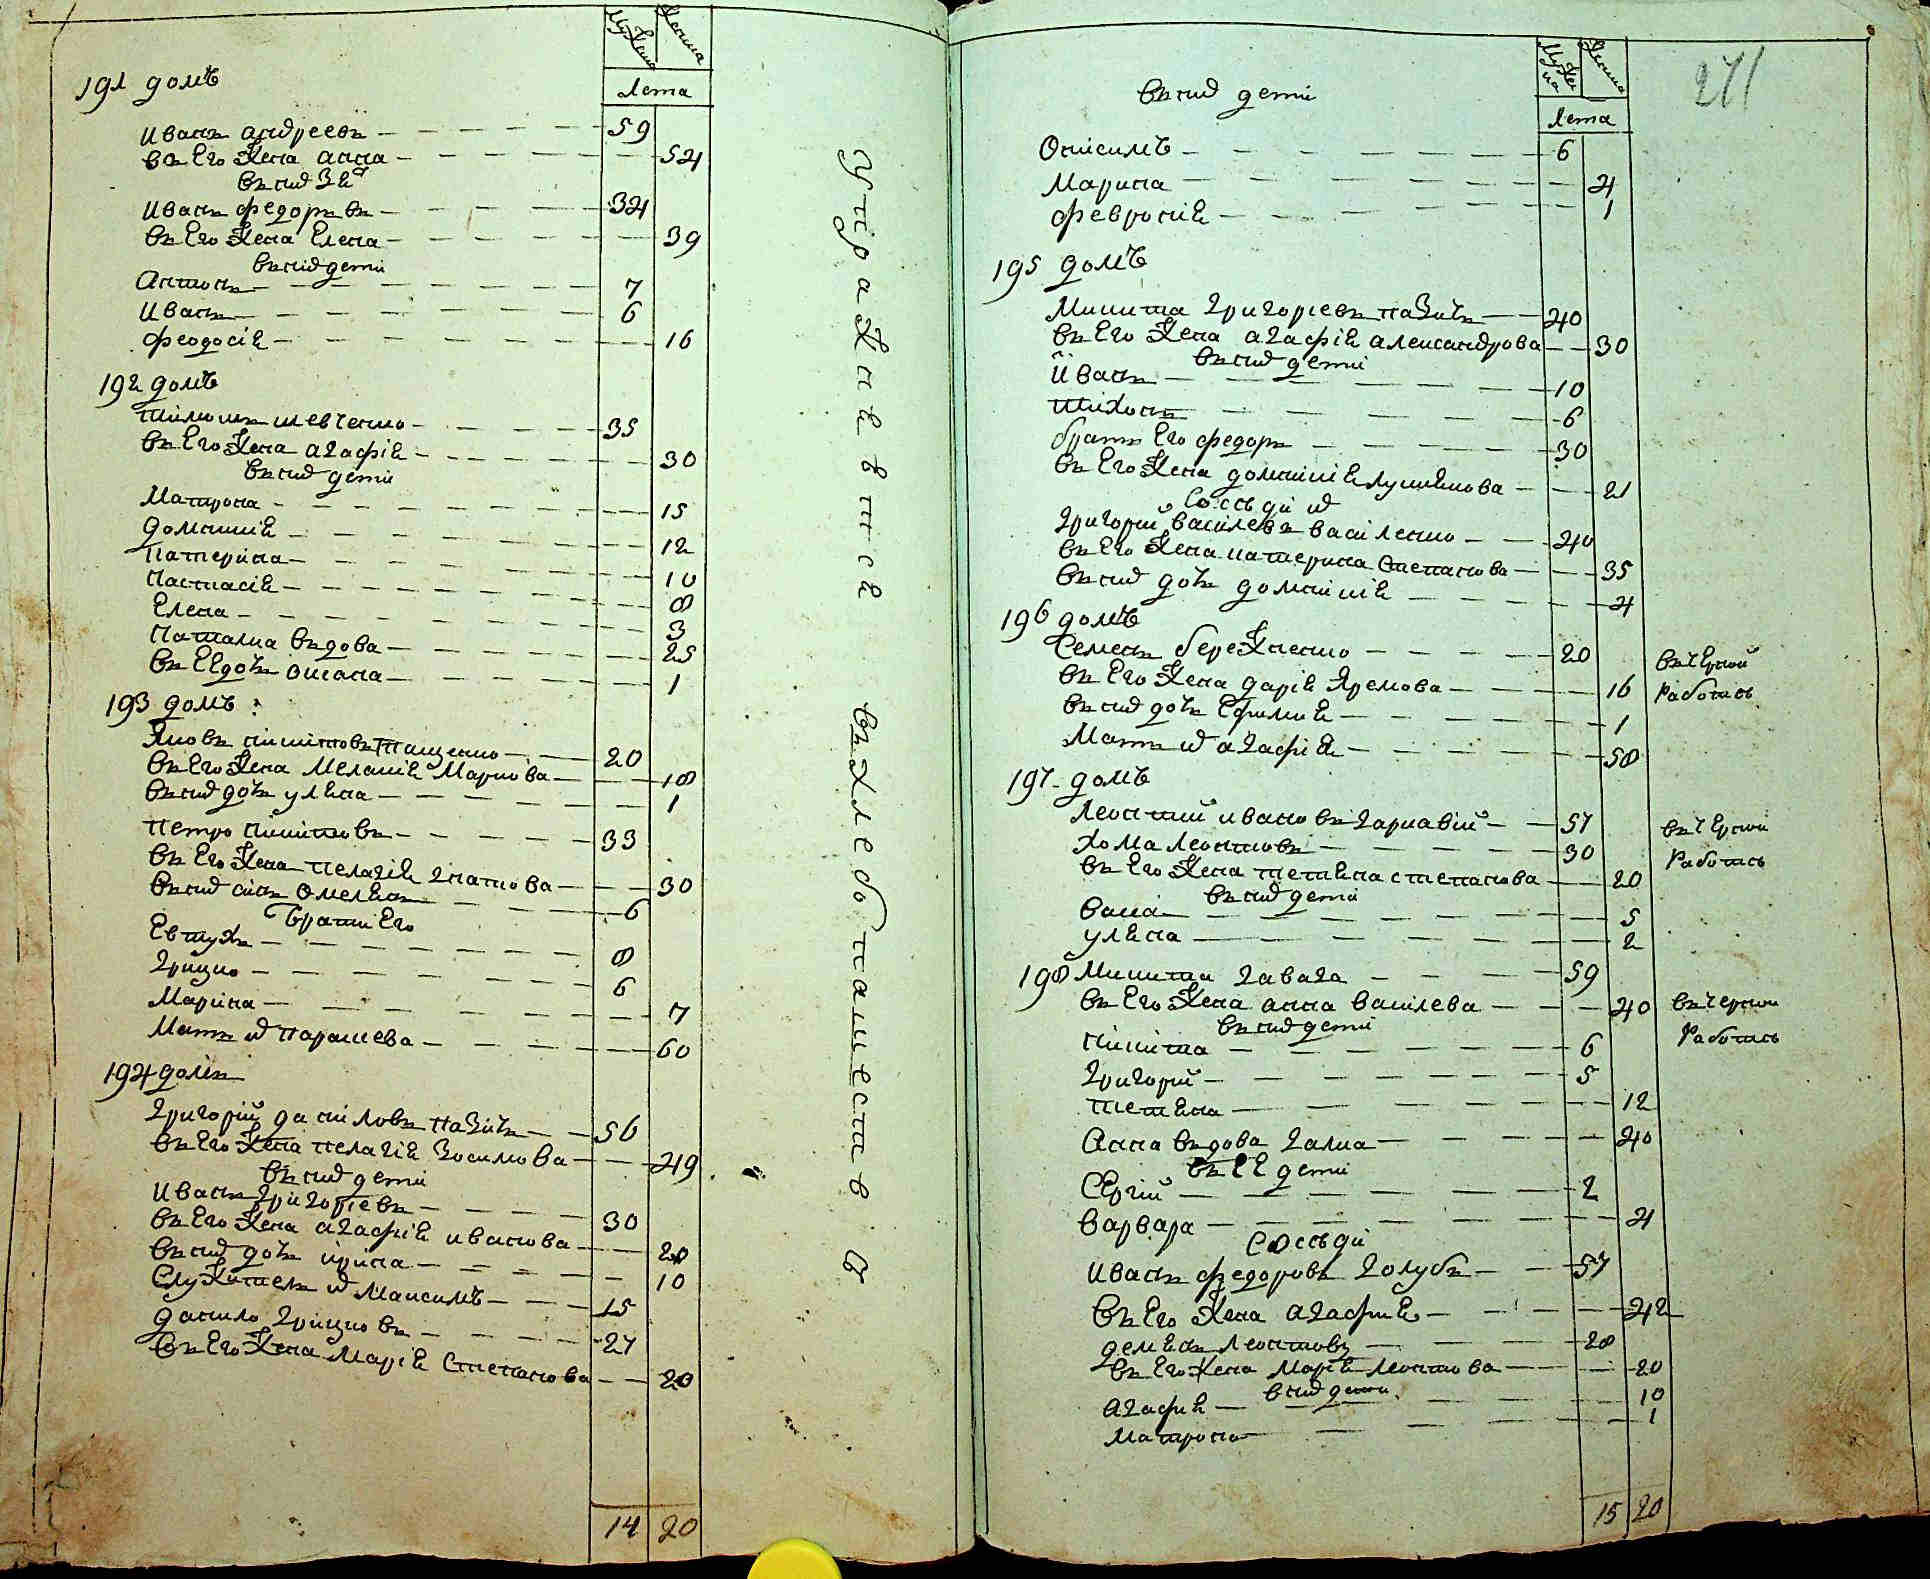 Мужеска
Женска
Лета
191 домъ
Иванъ андреевъ 59
въ Его Жена анна 54
въ них Зя
Иванъ федоръвъ 34
въ Его Жена Елена 39
въ них дети
Антонъ 7
Иванъ 6
феодосія 16
192 домъ
тимошъ шевченко 35
въ Его Жена агафія 30
въ них дети
Матрона 15
домникія 12
Катерина 10
Настасія 8
Елена 3
Наталка въдова 25
въ ЕЕ дочъ оксана 1
193 домъ
Яковъ никитовъ Пащенко 20
въ Его Жена Меланія Маркова 18
въ них дочъ уляна 1
Петро никитовъ 33
въ Его Жена пелагія игнатова 30
въ них синъ Омелянъ 6
братіи Его
Евтухъ 8
грицко 6
Марина 7
Мать их Параскева 60
194 домъ
григорій даниловъ пазичъ 56
въ Его Жена пелагія Зосимова 49
въ них дети
Иванъ григоріевъ 30
въ Его Жена агафія иванова 20
въ них дочъ ирина 10
Служитель их Максимъ 15
данило грицковъ 27
въ Его Жена Марія Степанова 20
14 20
упражняется
въ хлебопашестве
271
Мужеска
Женска
Лета
въ них дети
Онисимъ 6
Марина 4
февронія 1
195 домъ
Микита григоріевъ пазичъ 40
въ Его Жена агафія александрова 30
въ них дети
Иванъ 10
тихонъ 6
братъ Его федоръ 30
въ Его Жена домникія лукянова 21
Соседи их
григорій василевъ василенко 40
въ Его Жена катерина Степанова 35
въ них дочъ домникія 4
196 домъ
Семенъ бережненко 20
въ Его Жена дарія Яремова 16
въ них дочъ Ефимия 1
Мать их агафія 58
въ черной
работѣ
197 домъ
Леонтий ивановъ гаркавій 57
Хома Леонтовъ 30
въ Его Жена тетяна степанова 20
въ них дети
васа 5
уляна 2
въ черной
работѣ
198 Микита гавага 59
въ Его Жена анна василева 40
въ них дети
никита 6
григорій 5
тетяна 12
Анна въдова галка 40
въ ЕЕ дети
Сергій 2
варвара 4
въ черной
работѣ
Соседи
Иванъ федоровъ голубъ 57
въ Его Жена агафия 42
демянъ Леонтовъ 28
въ Его Жена Марія Леонтова 20
в них дети
агафия 10
Матрона 1
15 20